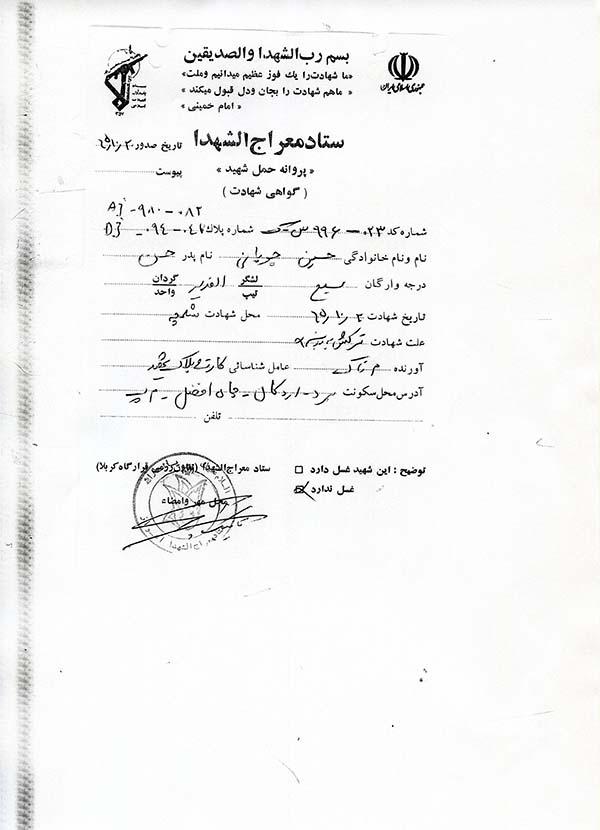 بسم رب الشهدا والصدیقین
«ما شهادت را یک فوز عظیم میدانیم وملت»
«ماهم شهادت را بجان ودل قبول میکند»
«امام خمینی»
جمهوری اسلامی ایران
ستاد معراج الشهدا
تاریخ صدور ۶۵/۱۰/۲۰
«پروانه حمل شهید»
پیوست
(گواهی شهادت)
AJ -۹۸۰-۰۸۲
شماره کد ۰۲۳-۹۹۶ س-ک شماره پلاک DJ -۰۹۴-۰۴۷
نام ونام خانوادگی حسین چوپانی نام پدر حسن
درجه وارگان بسیج لشگر تیپ الغدیر گردان واحد
تاریخ شهادت ۶۵/۱۰/۲۰ محل شهادت شلمچه
علت شهادت ترکش به
آورنده عامل شناسائی کارت و پلاک
آدرس محل سکونت یزد-اردکان-چاه افضل-م پ
تلفن
توضیح : این شهید غسل دارد
غسل ندارد
ستاد معراج الشهدا قرارگاه کربلا)
محل مهر وامضاء